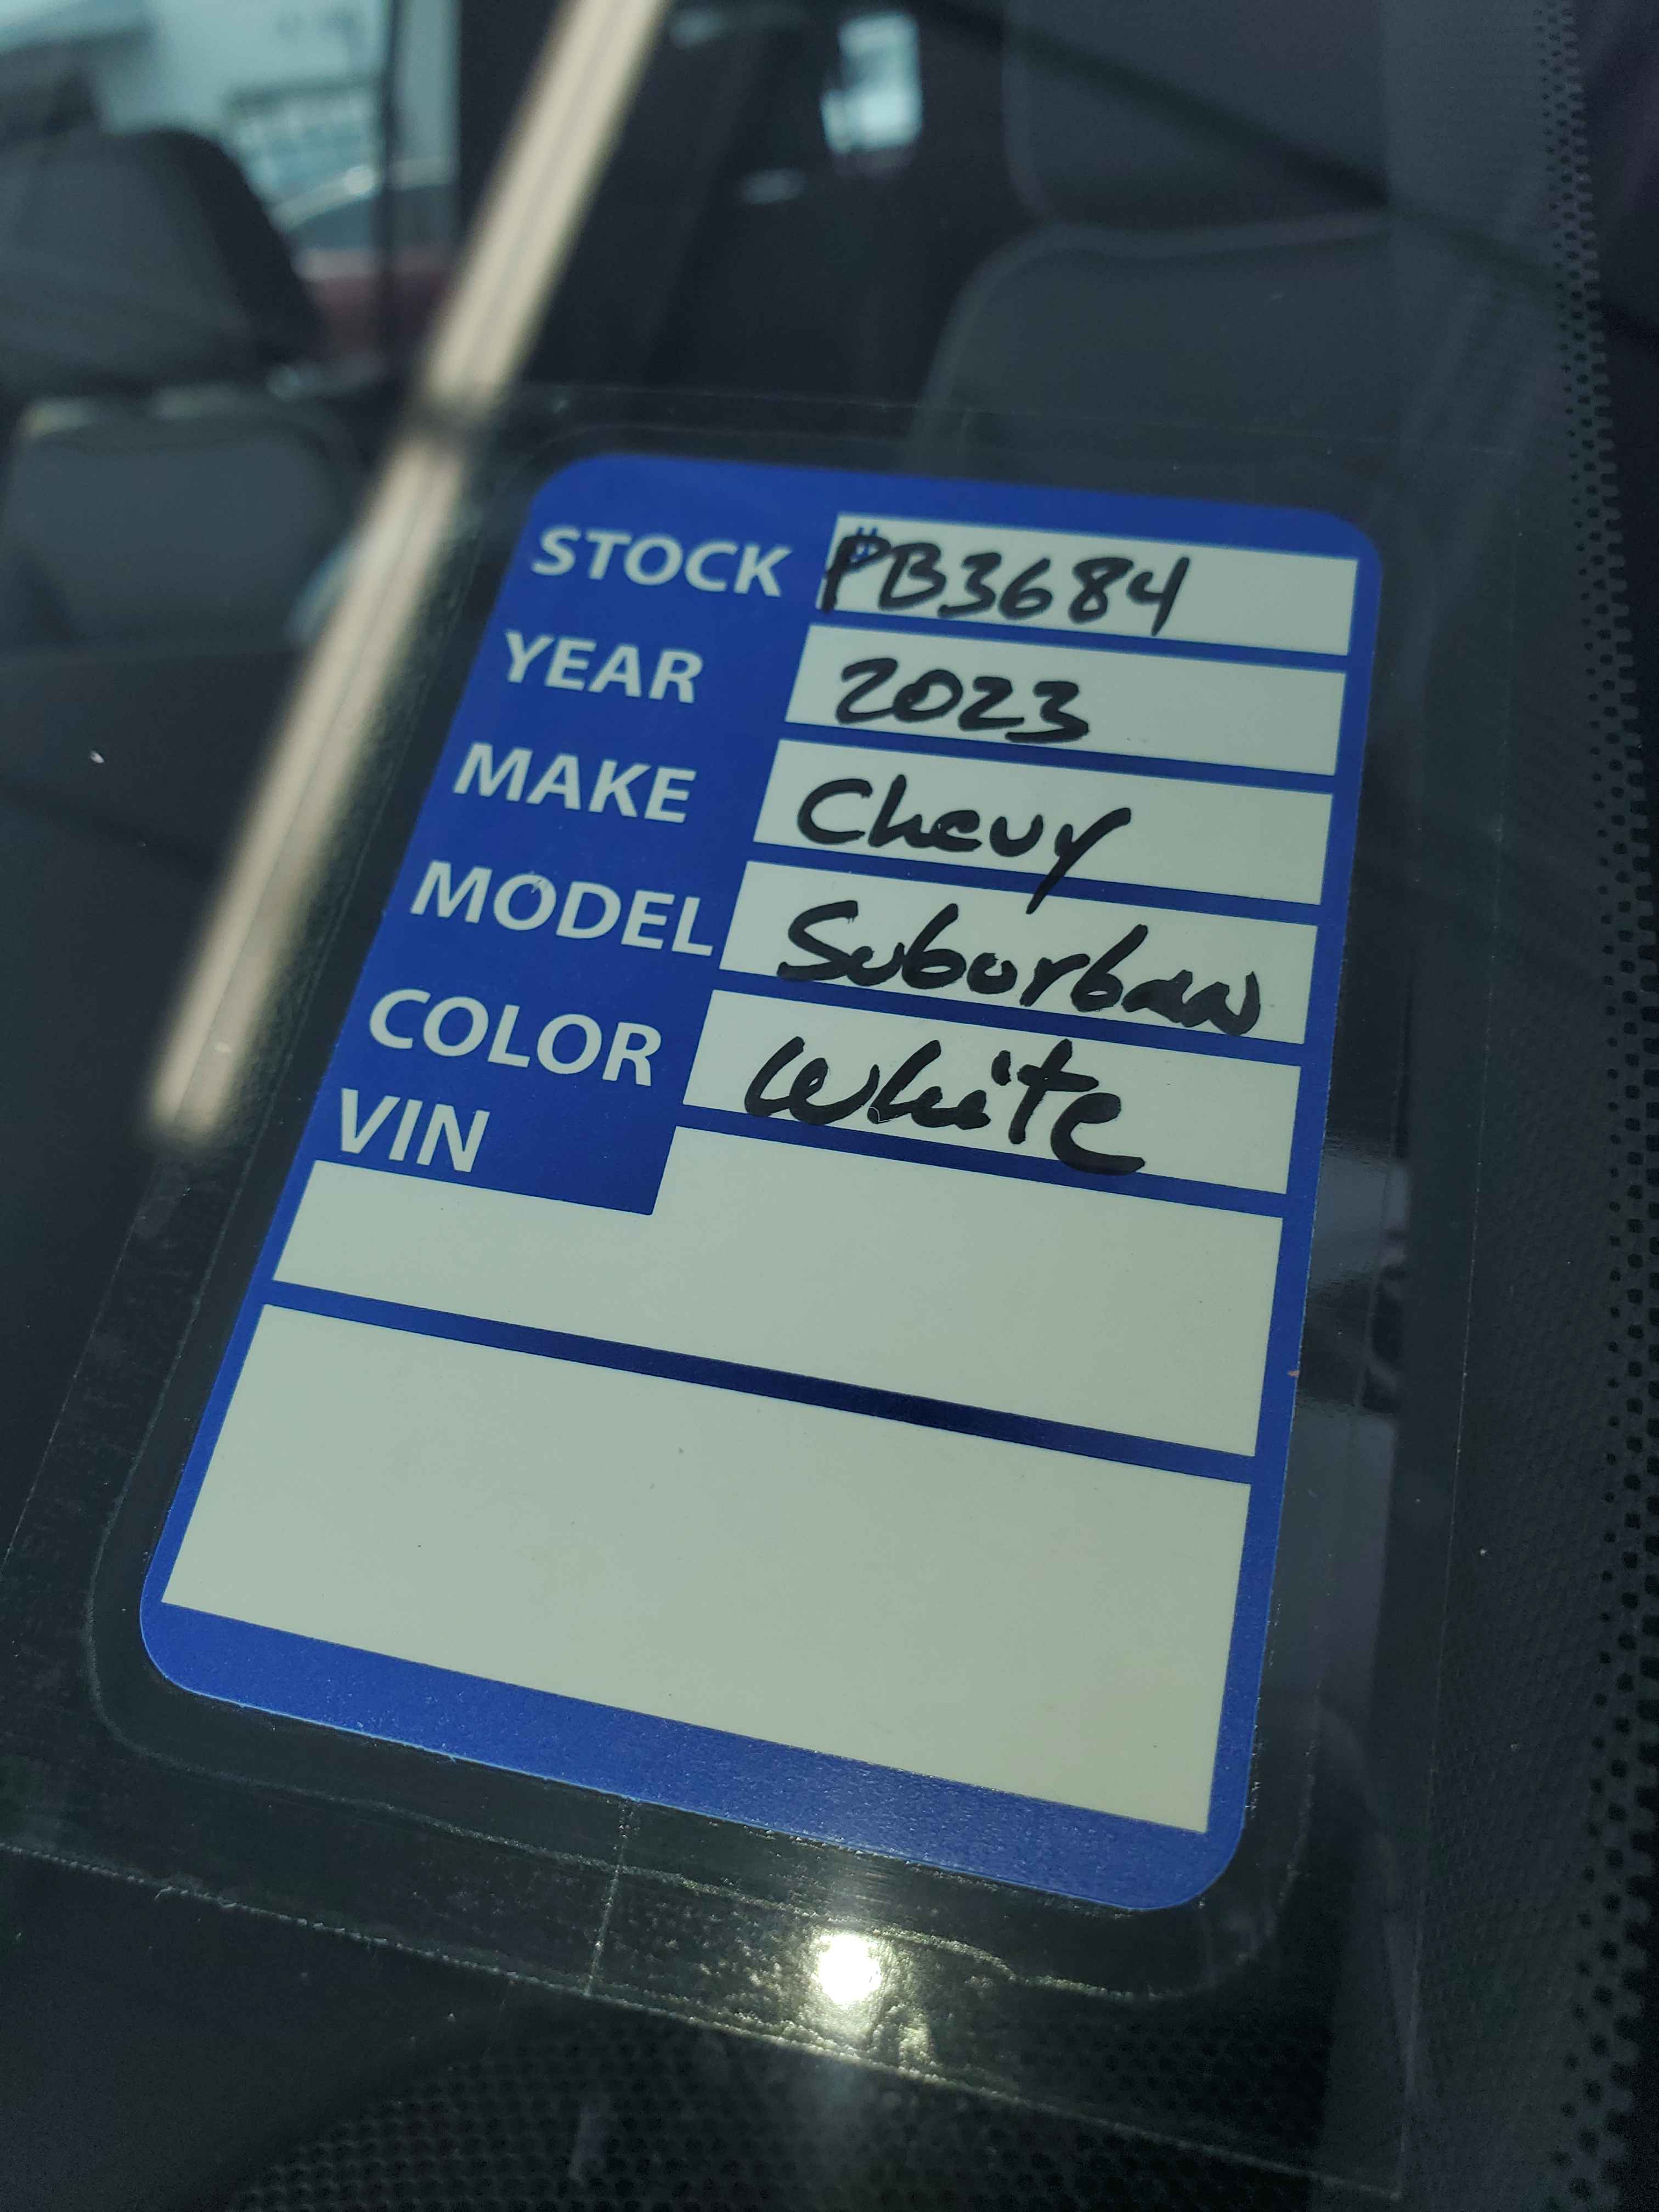 STOCK # PB3684
YEAR 2023
MAKE Chevy
MODEL Suburban
COLOR White
VIN